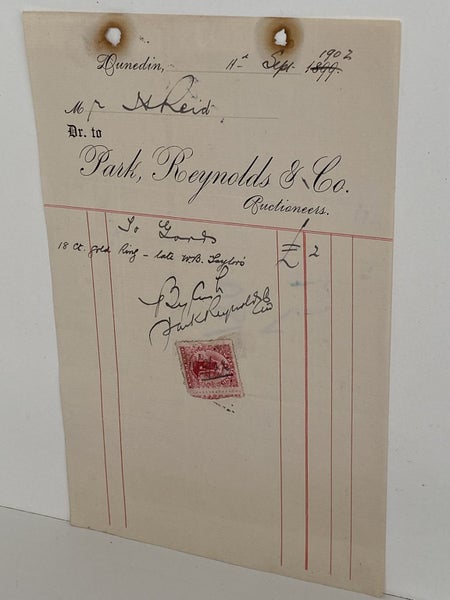 1902
Dunedin, 11th Sept. 1899.
Mr H Reid
Dr. to
Park, Reynolds & Co.
Auctioneers.
To Goods £ 2
18 Ct. gold Ring - late W.B. Taylor's
By Cash
Park Reynolds & Co